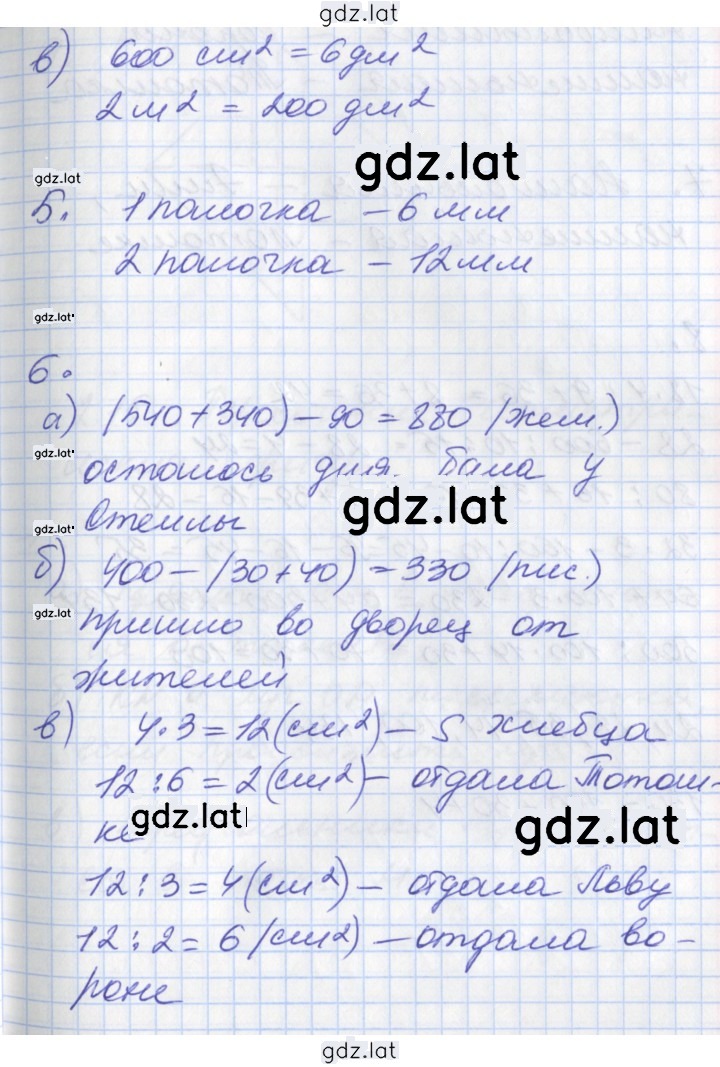 gdz.lat
в) 600 см² = 6 дм²
2 м² = 200 дм²
gdz.lat
gdz.lat
5. 1 палочка – 6 мм
2 палочка – 12 мм
gdz.lat
6.
а) (540 + 340) – 90 = 880 (жем.)
gdz.lat
осталось для бала у
gdz.lat
gdz.lat
Стеллы
б) 400 – (30 + 40) = 330 (пис.)
gdz.lat
пришло во дворец от
жителей
в) 4 · 3 = 12 (см²) – S хлебца
12 : 6 = 2 (см²) – отдала Тотош-
ке
gdz.lat
gdz.lat
12 : 3 = 4 (см²) – отдала Льву
12 : 2 = 6 (см²) – отдала во-
роне
gdz.lat